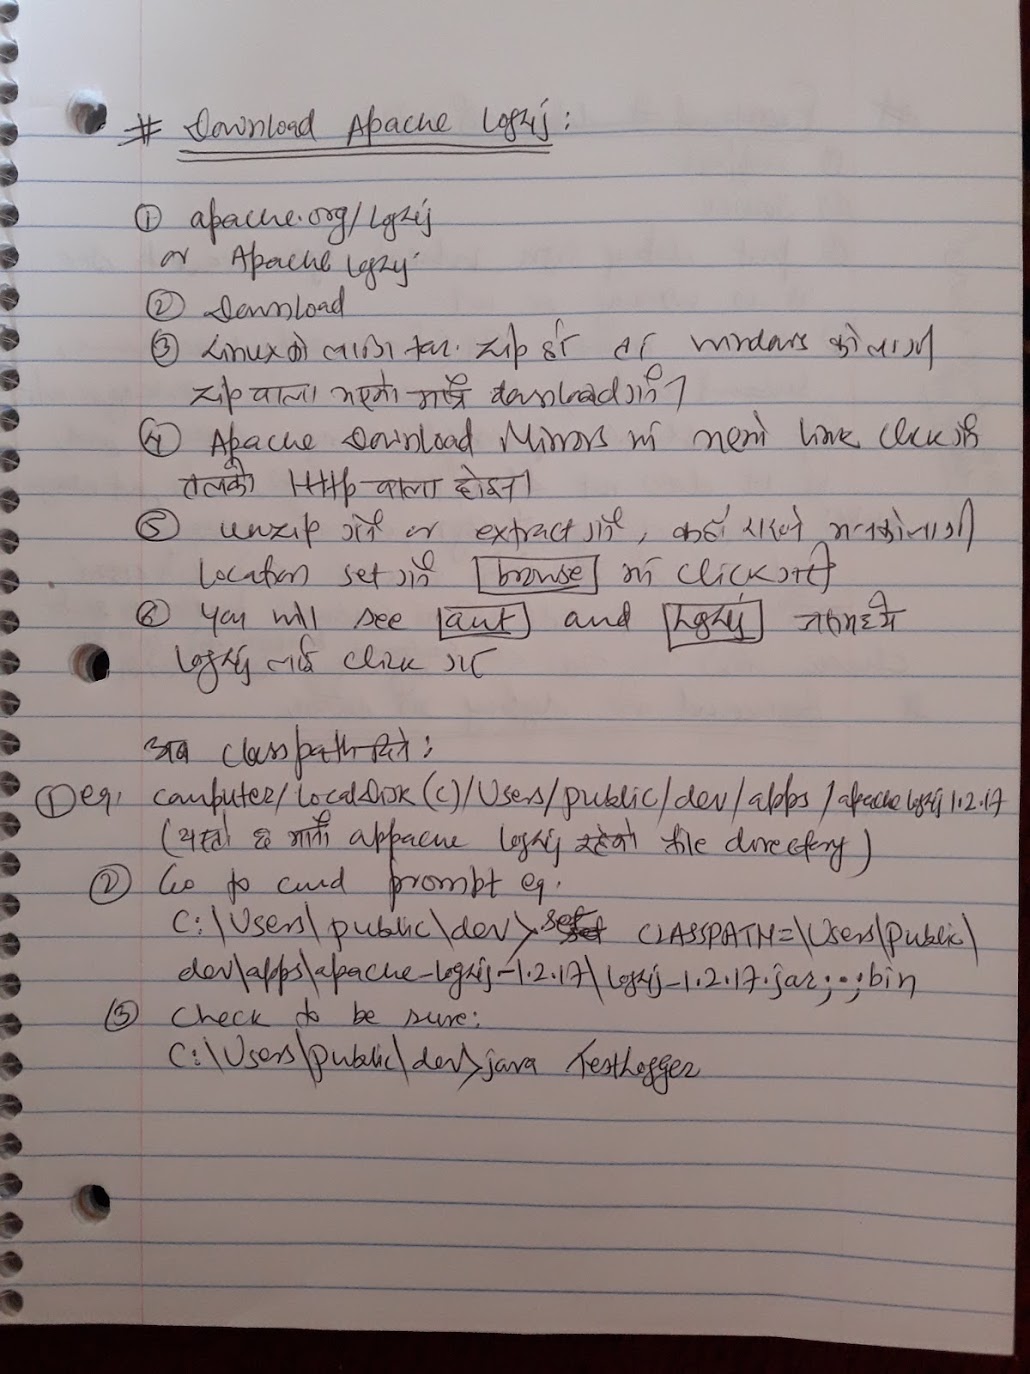 # Download Apache Log4j:
① apache.org/log4j
or Apache log4j
② Download
③ Linux को लागि tar. zip हो तर windows को लागी
zip वाला भएको मात्रै download गर्ने
④ Apache Download Mirrors मा भएको link click गर्ने
तलको Http वाला होइन।
⑤ unzip गर्ने or extract गर्ने, कहाँ राख्ने भन्नकोलागी
location set गर्ने browse मा click गरी
⑥ you will see ant and log4j
log4j लाई click गर
अब classpath दिने:
① eg. computer/LocalDisk (C)/Users/public/dev/apps/apache log4j 1.2.17
(यस्तो छ मानौं appache log4j रहेको file directory)
② Go to cmd prompt eg.
C:\Users\public\dev> set CLASSPATH=\Users\Public\
dev\apps\apache-log4j-1.2.17\log4j-1.2.17.jar;.;bin
③ Check to be sure:
C:\Users\public\dev>java TestLogger